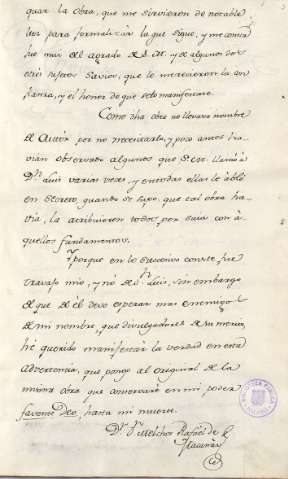 quar la obra, que me sirvieron de notable
luz para formalizar la que sigue, y me consta
fue mui del agrado de S. M. y de algunos dos
ò tres sujetos savios, que le merecieron la con
fianza, y el honor de que se lo manifestase.
Como dha obra no llevava nombre
de Autor por no necesitarlo, y poco antes ha-
vian observado algunos que S. M. llamó à
Dn Luis varias veces, y en todas ellas le habló
en secreto, quando se supo que tal obra ha-
via, la atribuieron todos por suia con à-
quellos fundamentos.
Y porque en lo sucesivo conste fue
travajo mio, y nò de Dn Luis, sin embargo
de que de èl devo esperar mas enemigos
de mi nombre, que divulgadores de su merito,
hè querido manifestar la verdad en esta
Advertencia, que pongo al original de la
misma obra que conservarè en mi poder
favente Deo, hasta mi muerte.
Dn Melchor Rafael de
Macanáz